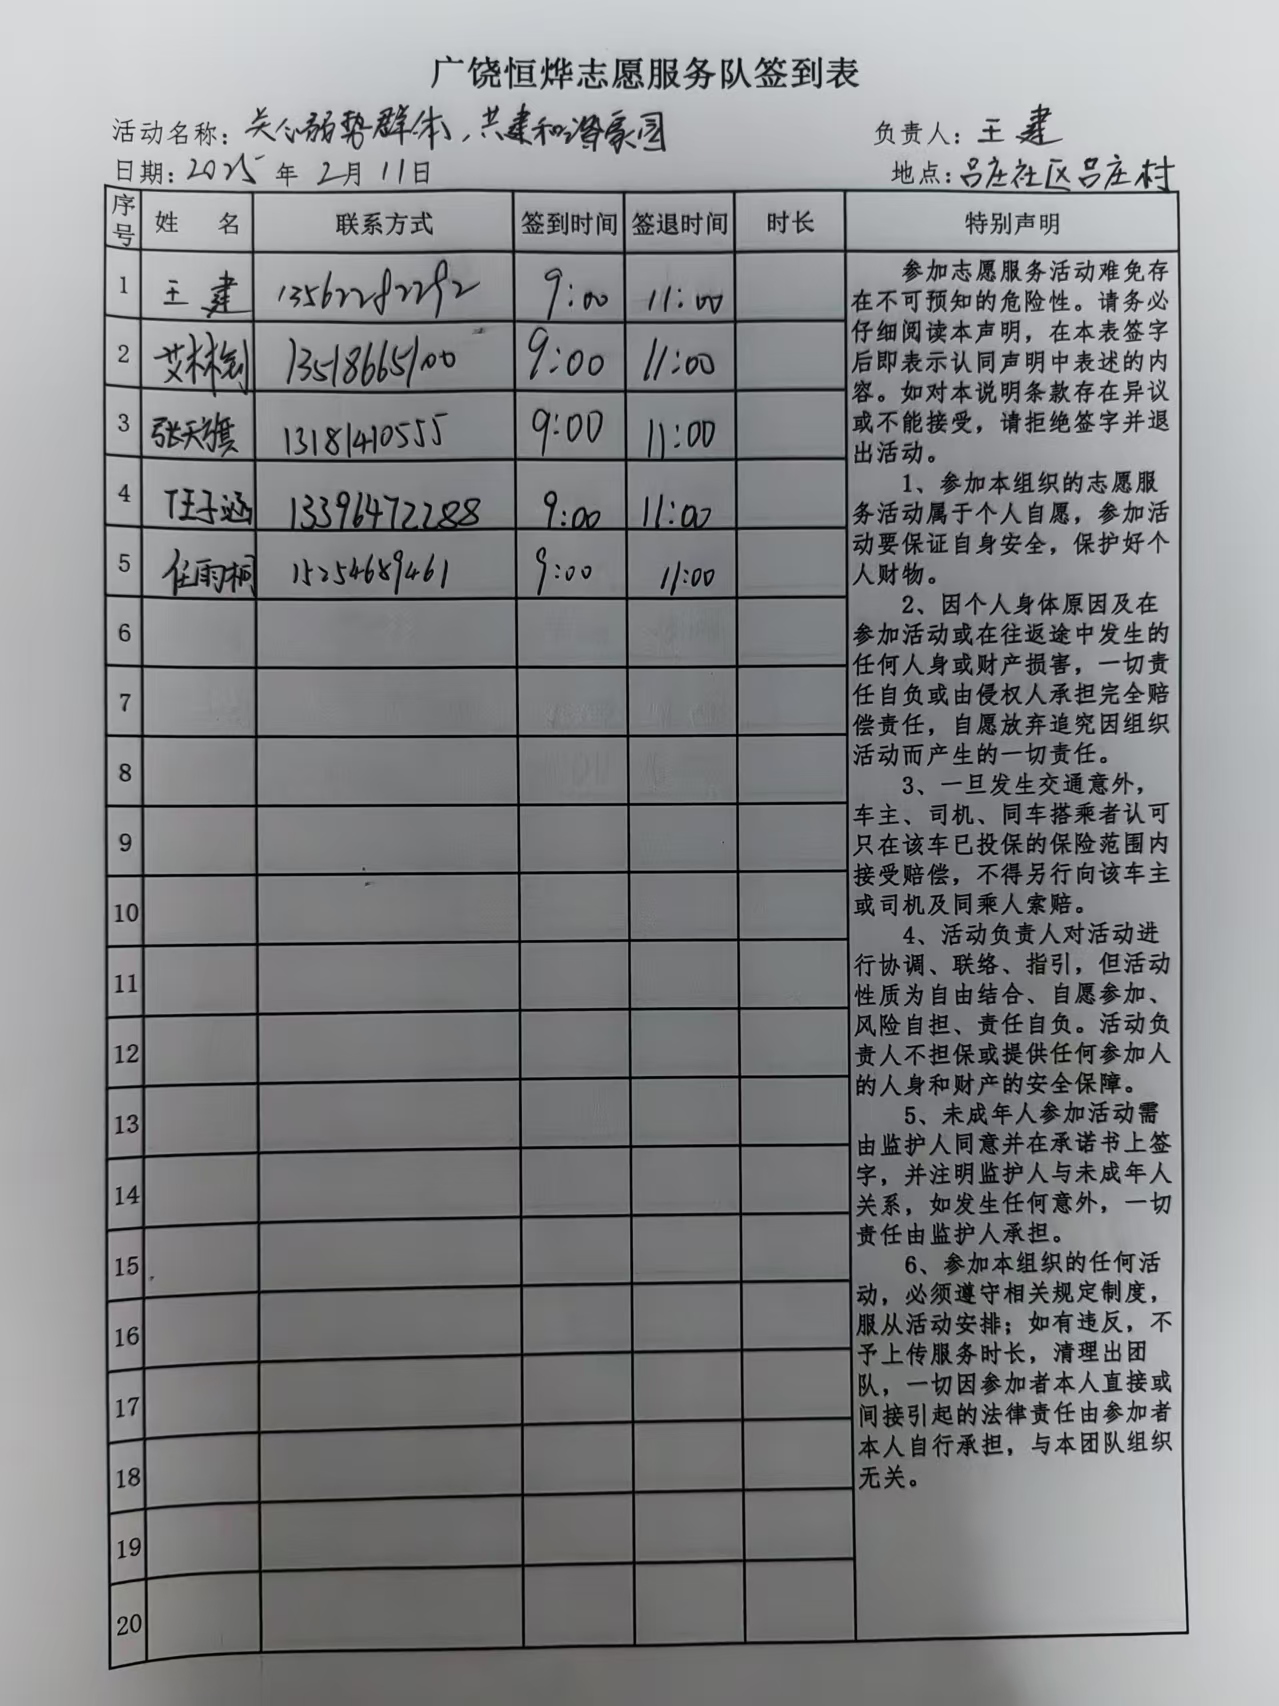 广饶恒烨志愿服务队签到表
活动名称：关心弱势群体，共建和谐家园 负责人：王建
日期：2025年2月11日 地点：吕庄社区吕庄村
序号 姓 名 联系方式 签到时间 签退时间 时长 特别声明
1 王建 13562282292 9:00 11:00
2 艾林 13518665100 9:00 11:00
3 张天旗 13181410555 9:00 11:00
4 任子涵 13396472288 9:00 11:00
5 任雨桐 15254689461 9:00 11:00
6
7
8
9
10
11
12
13
14
15
16
17
18
19
20
参加志愿服务活动难免存
在不可预知的危险性。请务必
仔细阅读本声明，在本表签字
后即表示认同声明中表述的内
容。如对本说明条款存在异议
或不能接受，请拒绝签字并退
出活动。
1、参加本组织的志愿服
务活动属于个人自愿，参加活
动要保证自身安全，保护好个
人财物。
2、因个人身体原因及在
参加活动或在往返途中发生的
任何人身或财产损害，一切责
任自负或由侵权人承担完全赔
偿责任，自愿放弃追究因组织
活动而产生的一切责任。
3、一旦发生交通意外，
车主、司机、同车搭乘者认可
只在该车已投保的保险范围内
接受赔偿，不得另行向该车主
或司机及同乘人索赔。
4、活动负责人对活动进
行协调、联络、指引，但活动
性质为自由结合、自愿参加、
风险自担、责任自负。活动负
责人不担保或提供任何参加人
的人身和财产的安全保障。
5、未成年人参加活动需
由监护人同意并在承诺书上签
字，并注明监护人与未成年人
关系，如发生任何意外，一切
责任由监护人承担。
6、参加本组织的任何活
动，必须遵守相关规定制度，
服从活动安排；如有违反，不
予上传服务时长，清理出团
队，一切因参加者本人直接或
间接引起的法律责任由参加者
本人自行承担，与本团队组织
无关。